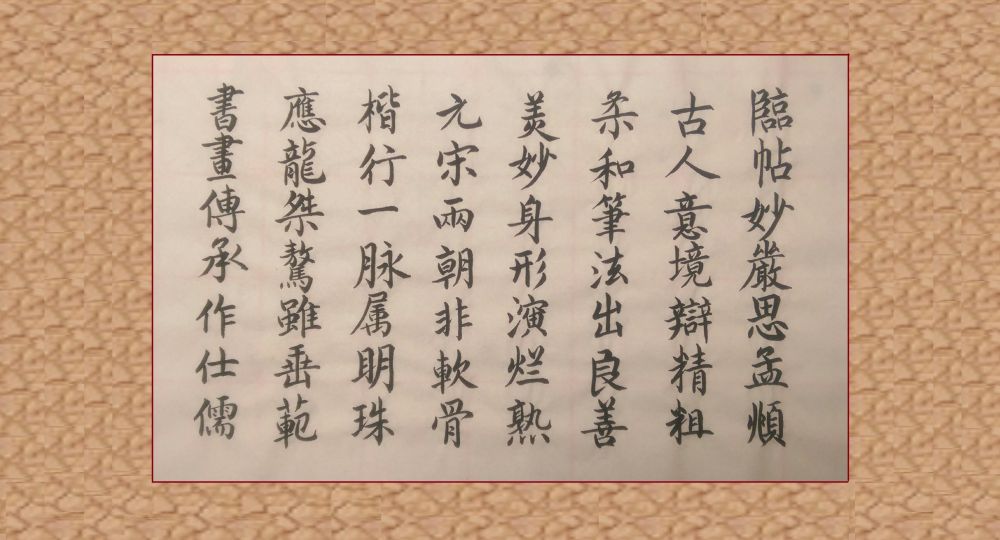 臨帖妙嚴思孟頫
古人意境辯精粗
柔和筆法出良善
美妙身形演烂熟
元宋兩朝非軟骨
楷行一脉属明珠
應龍桀驁雖垂範
書畫傳承作仕儒